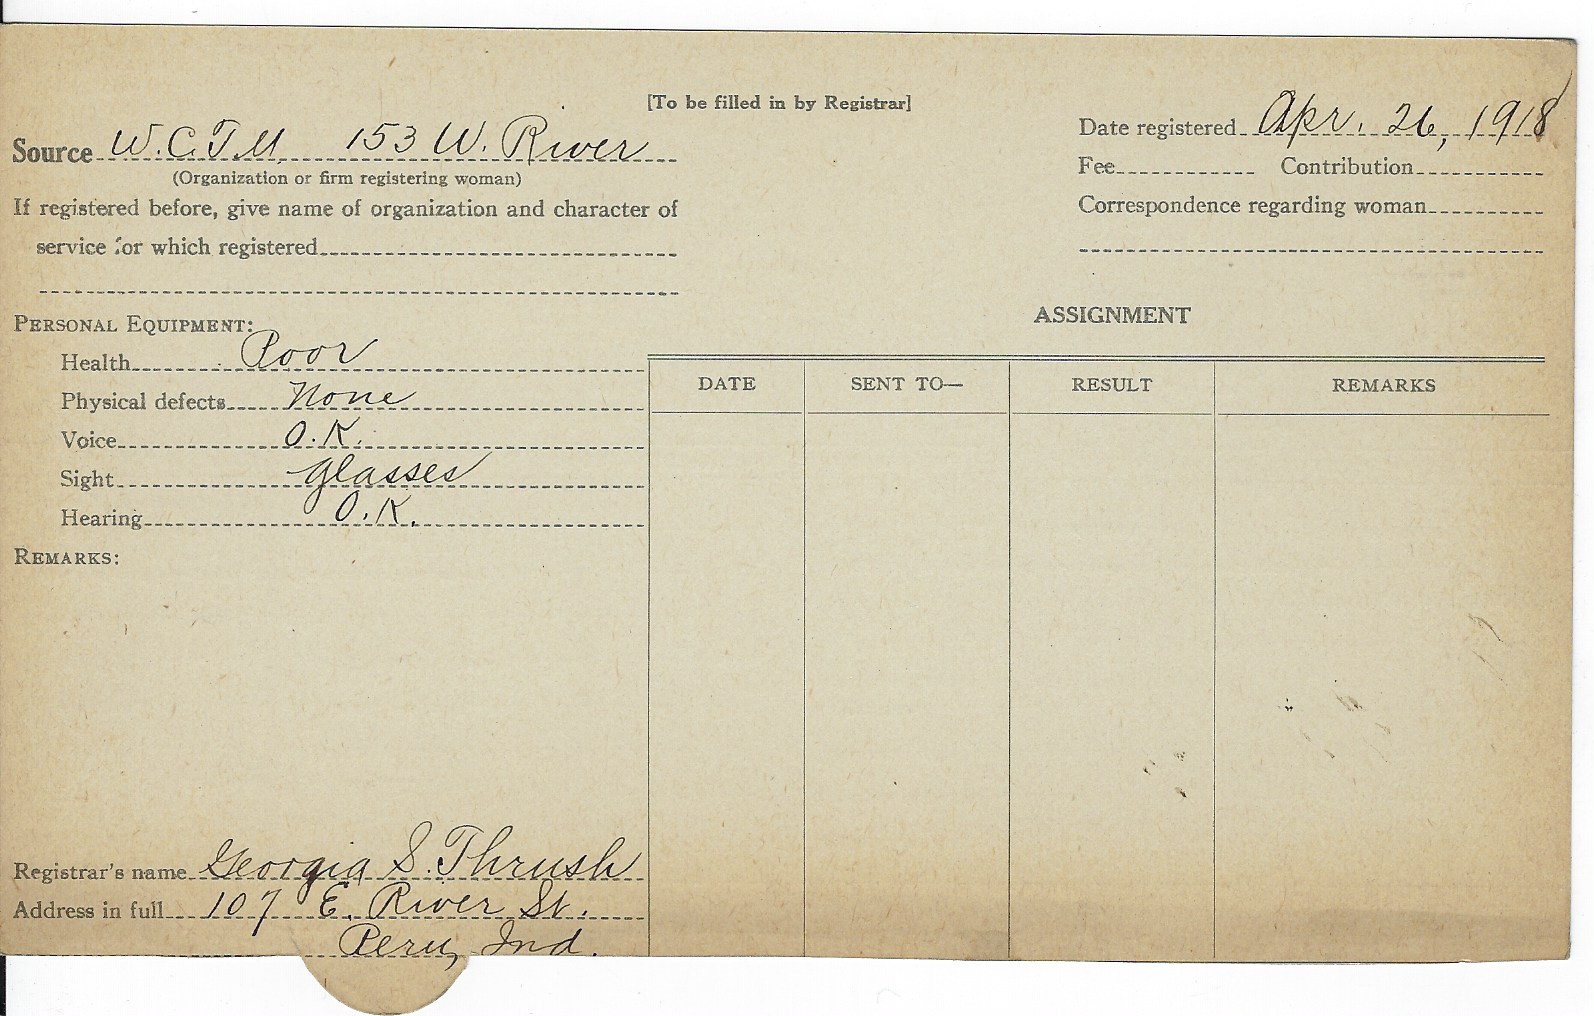 [To be filled in by Registrar]
Source W.C.T.U. 153 W. River
(Organization or firm registering woman)
If registered before, give name of organization and character of
service for which registered
Date registered Apr. 26, 1918
Fee Contribution
Correspondence regarding woman
PERSONAL EQUIPMENT:
Health Poor
Physical defects None
Voice O.K.
Sight glasses
Hearing O.K.
REMARKS:
ASSIGNMENT
DATE SENT TO— RESULT REMARKS
Registrar's name Georgia S. Thrush
Address in full 107 E. River St.
Peru, Ind.